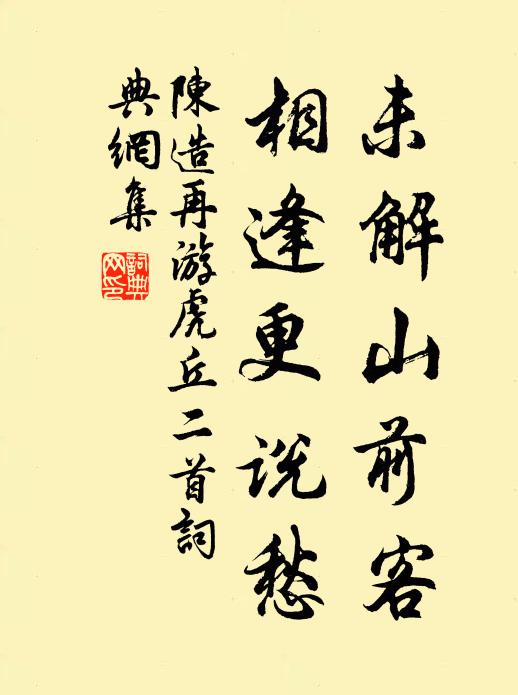 未解山前客
相逢更说愁
陳造再游虎丘二首詞
典網集
詞典网印